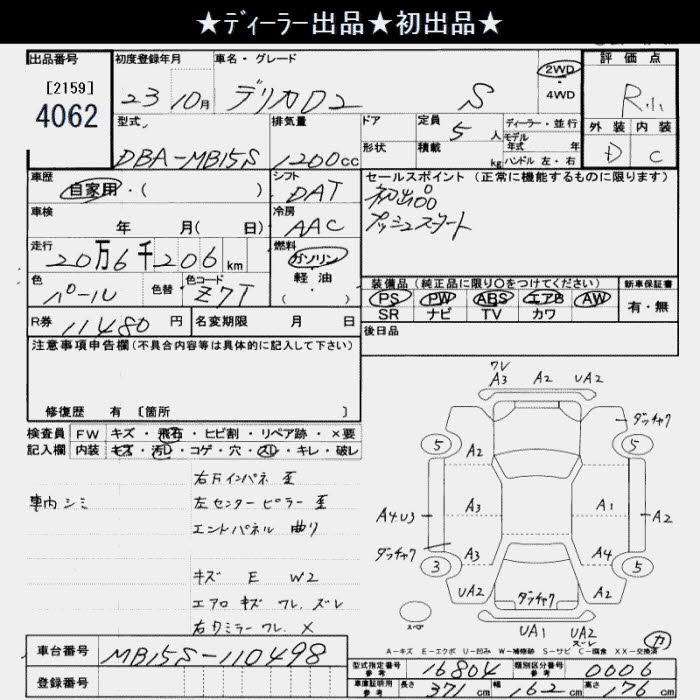 ★ディーラー出品★初出品★
出品番号
[2159]
4062
初度登録年月
23 10月
車名・グレード
デリカD2 S
2WD
4WD
評価点
R小
外装 内装
D C
型式
DBA-MB15S
排気量
1200cc
ドア
形状
定員 5 人
積載 kg
ディーラー・並行
モデル
年式 年
ハンドル 左・右
車歴
自家用・( )
シフト
DAT
セールスポイント (正常に機能するものに限ります)
初出品
プッシュスタート
車検
年 月( 日)
冷房
AAC
走行
20万6千206km
燃料
ガソリン
軽油
( )
色
パール
色替
色コード
Z7T
装備品(純正品に限り○をつけてください)
PS PW ABS エアB AW
SR ナビ TV カワ
新車保証書
有・無
R券 11480 円
名変期限 月 日
後日品
注意事項申告欄(不具合内容等は具体的に記入して下さい)
修復歴 有 [箇所 ]
検査員
記入欄
FW キズ・飛石・ヒビ割・リペア跡・×要
内装 キズ・汚レ・コゲ・穴・スレ・キレ・破レ
車内シミ
右Fインパネ 歪
左センターピラー 歪
エンドパネル 曲り
キズ E W2
エアロ キズ ワレ ズレ
右ドミラー ワレ X
ワレ
A3 A2 UA2
ダッチャク
5 5
A2
A4U3 A3 A1 A2
ダッチャク
A3 A4
3 5
UA2 ダッチャク A2
スペア
UA1 UA2
ズレ
カ
A-キズ E-エクボ U-凹み W-補修跡 S-サビ C-腐食 XX-交換済
車台番号
MB15S-110498
登録番号
型式指定番号
参考
16804
類別区分番号
参考
0006
車庫証明用
参考
長さ 371cm 幅 162cm 高さ 76cm